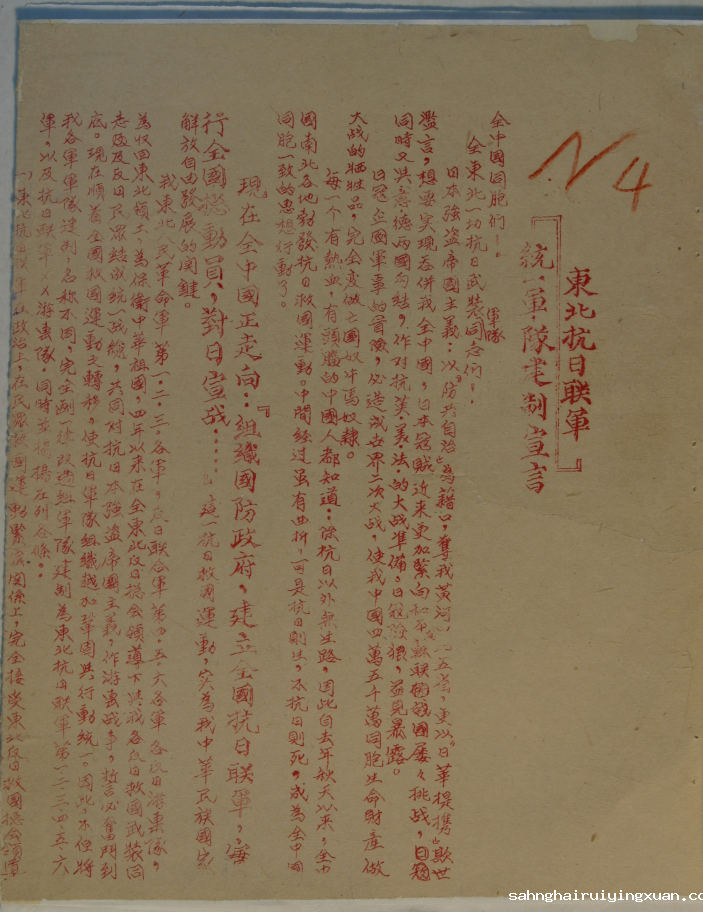 N 4
東北抗日联軍
『統一軍隊建制宣言』
全中國同胞們！。
全東北一切抗日武装軍隊同志们！。
日本強盗帝國主義：以“防共自治”為藉口，奪我黄河以北五省，更以“日華提携”欺世
濫言，想要实現吞併我全中國，日本寇賊近來更加緊向和平蘇联國屡々挑战，日寇
同時又與意德两國勾結，作对抗英·美·法·的大战準備，日寇猖獗，益見暴露。
日寇這國軍事的冒險，必造成世界二次大战，使我中國四萬五千萬同胞生命財産做
大战的牺牲品，完全変做亡國奴牛馬奴隷。
每一个有熱血，有頭腦的中國人都知道：除抗日以外無生路，因此自去年秋天以來，全中
國南北，各地勃發抗日救國運動。中間経过虽有曲折，可是抗日則生，不抗日則死，成為全中國
同胞一致的思想行動了。
現在全中國正走向：『組織國防政府，建立全國抗日联軍，实
行全國総動員，對日宣战……』這一抗日救國運動，实為我中華民族國家
解放自由發展的関鍵。
我東北人民革命軍第一·二·三·各軍，反日联合軍第四·五·六各軍各反日游击隊，
為収回東北領土，為保衛中華祖國，四年以來在全東北反日総会領導下與我各反日救國武装同
志及反日民眾結成统一战綫，共同对抗日本強盗帝國主義，作游击战争，誓言必奮鬥到
底。現在順着全國救國運動之轉移，使抗日軍隊組織越加鞏固與行動統一。因此不但将
我各軍軍隊建制，名称不同，完全劃一建改造組軍隊建制為東北抗日联軍第一二三四·五·六
軍，以及抗日联軍××游击隊。同時並揭揚左列各條：
一）東北抗日联軍在政治上，在民眾救國運動緊密関係上，完全接受東北反日救國総会領導
sahnghairuiyingxuan.co